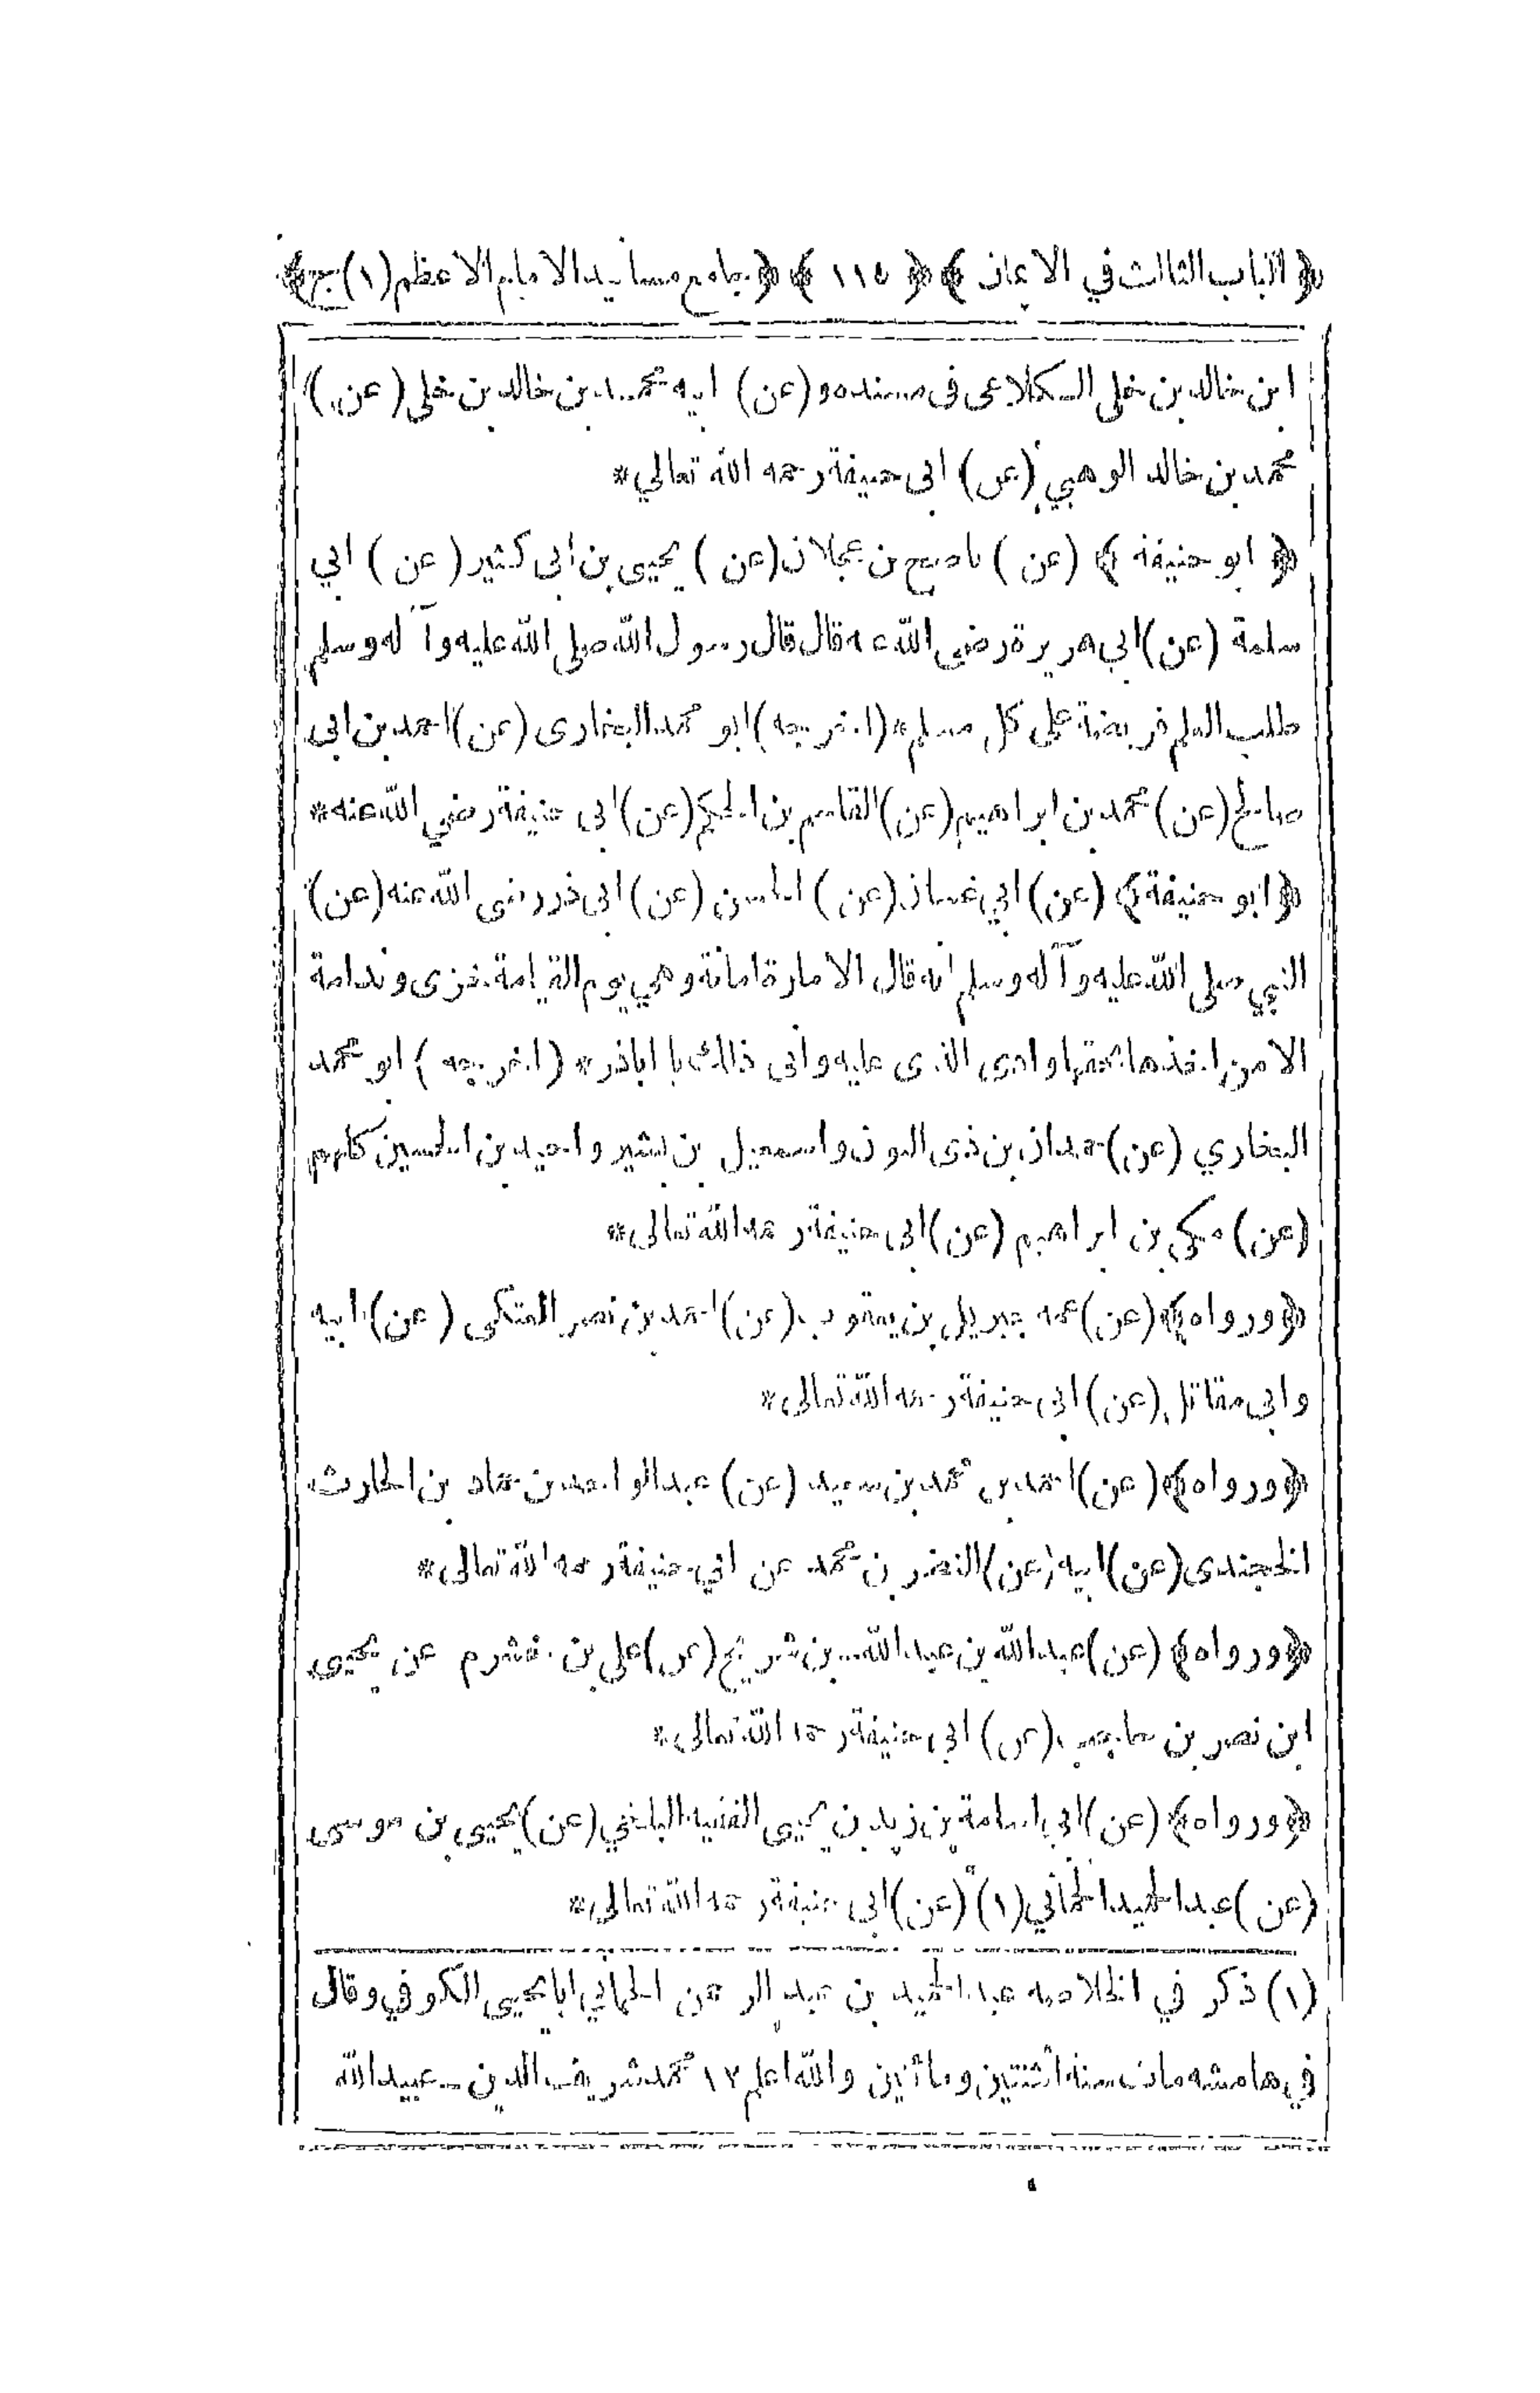 ﴿ الباب الثالث في الايمان ﴾ ﴿ ١١٥ ﴾ ﴿ جامع مسانيد الامام الاعظم (١) ج ﴾
ابن خالد بن خلي الكلاعى فى مسنده و (عن) ابيه محمد بن خالد بن خلى (عن)
محمد بن خالد الوهبي (عن) ابى حنيفة رحمه الله تعالي *
﴿ ابو حنيفة ﴾ (عن) ناصح بن عجلان (عن) يحيى بن ابى كثير (عن) ابي
سلمة (عن) ابي هريرة رضي الله عنه قال قال رسول الله صلى الله عليه وآله وسلم
طلب العلم فريضة على كل مسلم * (اخرجه) ابو محمد البخارى (عن) احمد بن ابى
صالح (عن) محمد بن ابراهيم (عن) القاسم بن الحكم (عن) ابى حنيفة رضي الله عنه *
﴿ ابو حنيفة ﴾ (عن) ابي غسان (عن) الحسن (عن) ابى ذر رضى الله عنه (عن)
النبي صلى الله عليه وآله وسلم انه قال الامارة امانة وهي يوم القيامة خزى وندامة
الا من اخذها بحقها وادى الذى عليه وانى ذالك يا اباذر * (اخرجه) ابو محمد
البخاري (عن) حمدان بن ذى النون واسمعيل بن بشير واحيد بن الحسين كلهم
(عن) مكى بن ابراهيم (عن) ابى حنيفة رحمه الله تعالى *
﴿ ورواه ﴾ (عن) عمه جبريل بن يعقوب (عن) احمد بن نصر العتكى (عن) ابيه
وابى مقاتل (عن) ابى حنيفة رحمه الله تعالى *
﴿ ورواه ﴾ (عن) احمد بن محمد بن سعيد (عن) عبد الواحد بن حماد بن الحارث
الخجندى (عن) ابيه (عن) النضر بن محمد عن ابي حنيفة رحمه الله تعالى *
﴿ ورواه ﴾ (عن) عبد الله بن عبيد الله بن شريح (عن) علي بن خشرم عن يحيى
ابن نصر بن حاجب (عن) ابى حنيفة رحمه الله تعالى *
﴿ ورواه ﴾ (عن) ابى اسامة بن زيد بن يحيى الفقيه البلخي (عن) يحيى بن موسى
(عن) عبد الحميد الحماني (١) (عن) ابى حنيفة رحمه الله تعالى *
(١) ذكر في الخلاصه عبد الحميد بن عبد الرحمن الحماني ابا يحيى الكوفي وقال
في هامشه مات سنه اثنتين ومأتين والله اعلم ١٢ محمد شريف الدين ـ عبيد الله